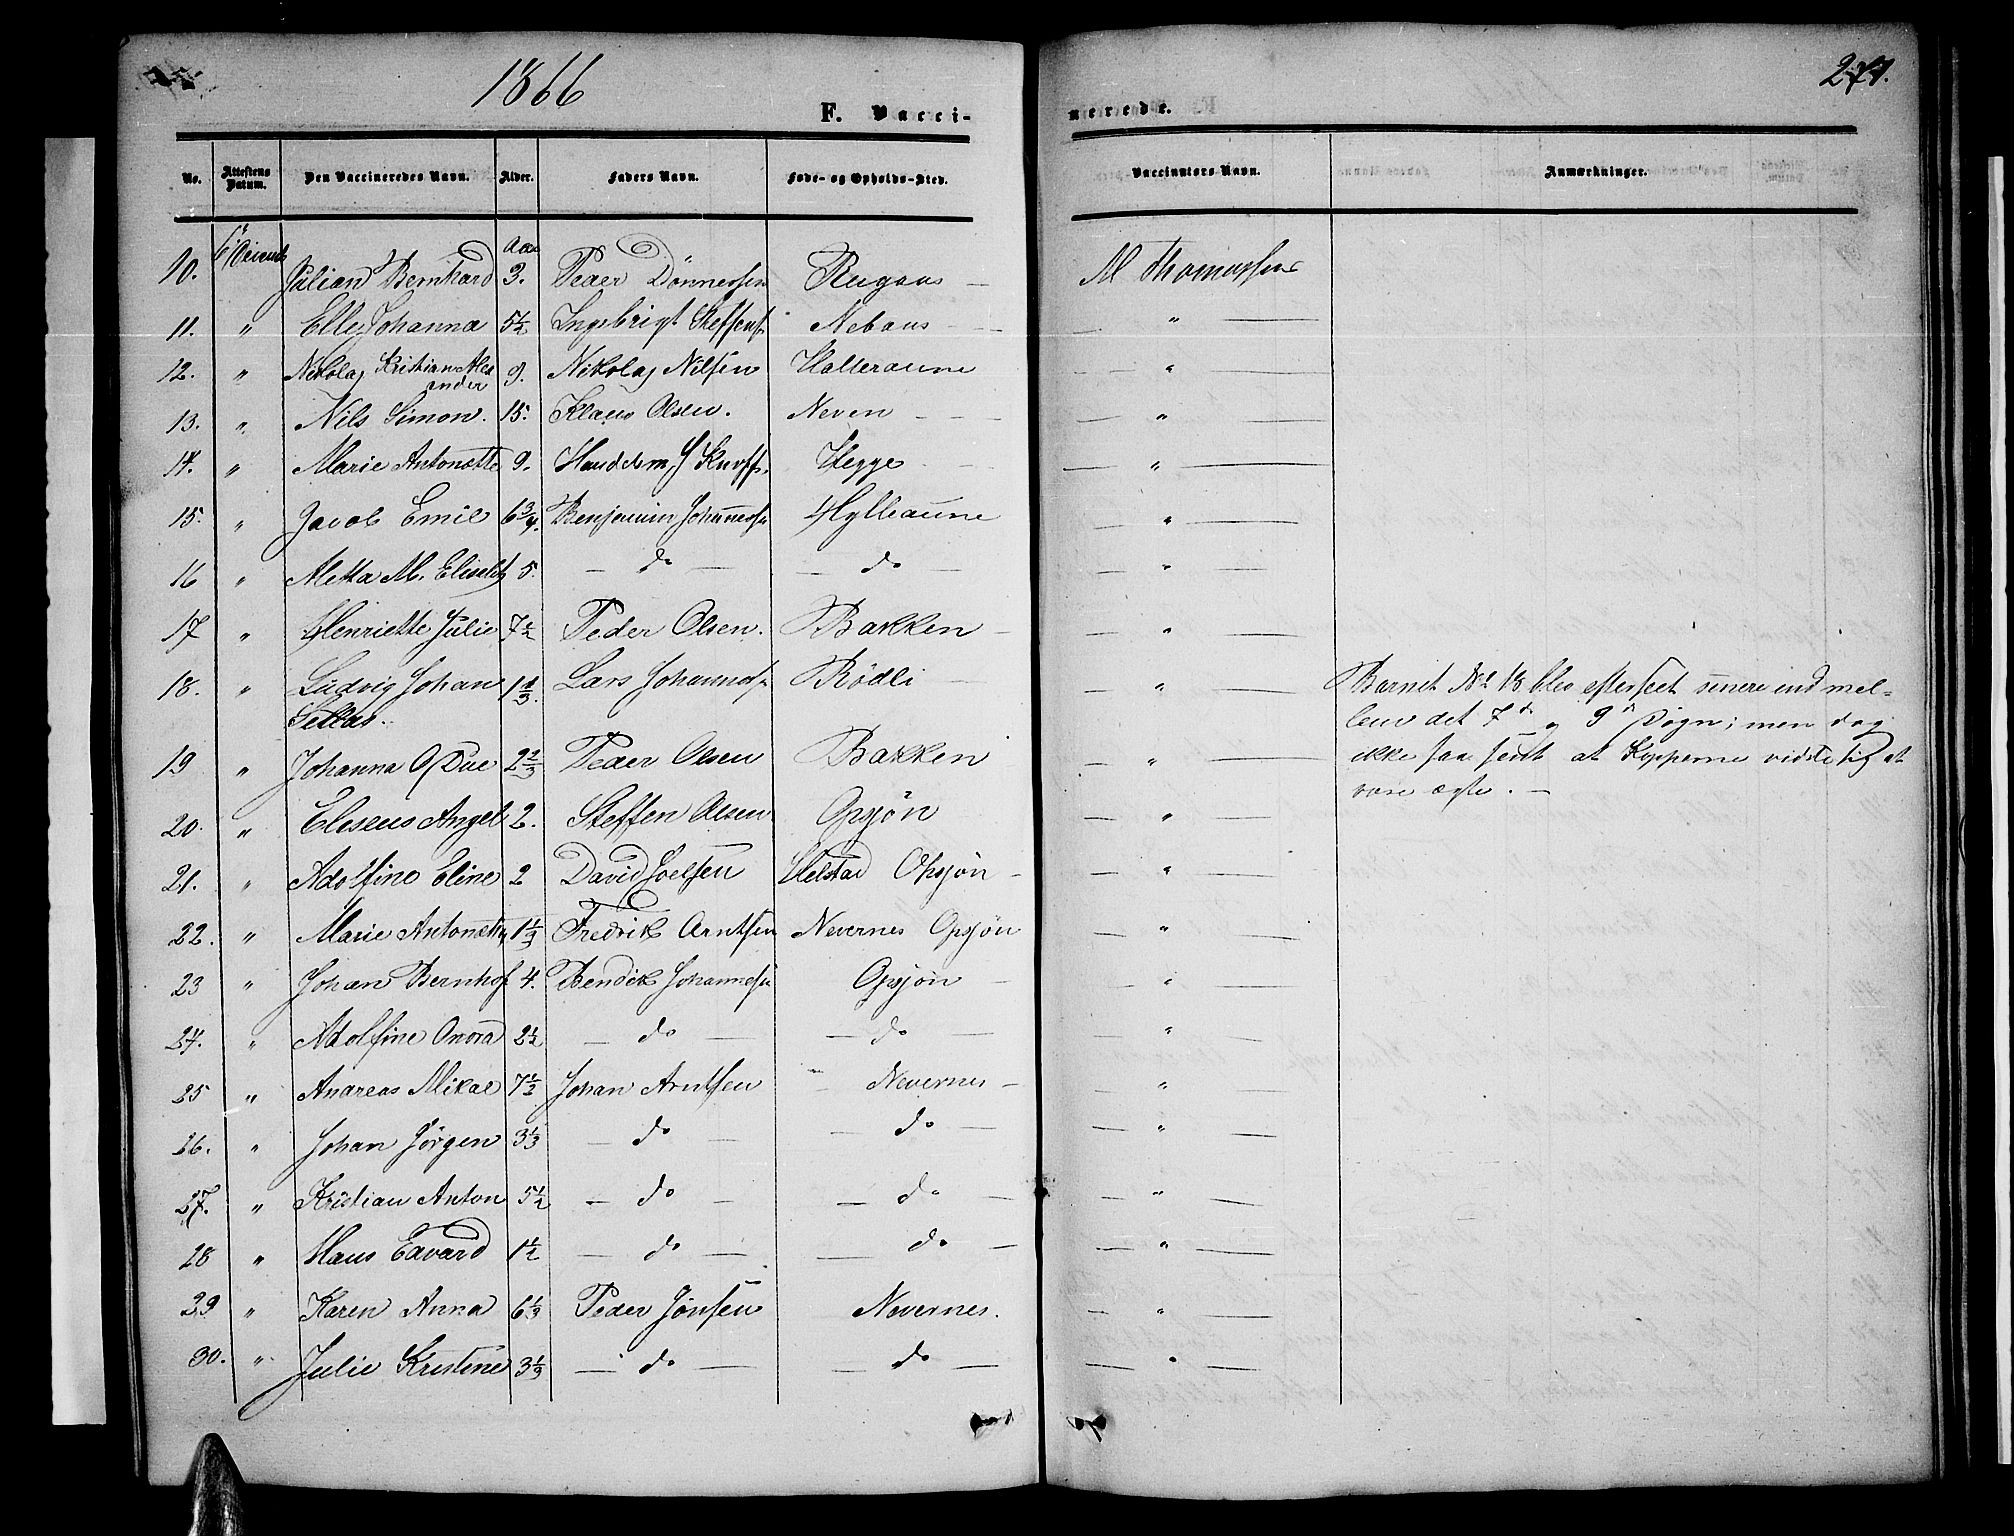 1866
271.
F. Vacci-
nerede.
No. Attestens Datum. Den Vaccineredes Navn. Alder. Faders Navn. Føde- og Opholds-Sted. Vaccinators Navn. Anmærkninger.
10. Julian Bernhard 3. Peder Dönnessen Rugaas — M Thomassen
11. " Elle Johanna 5½ Ingebrigt Steffens. Nebaus — — " —
12. " Nikolaj Kristian Alex
ander 9. Nikolaj Nilsen Halteraune — " —
13. " Nils Simon. 15. Klaus Olsen. Neven — — — " —
14. " Marie Antonette 9. Handelsm. J Knoff. Hegge — — — " —
15. " Jacob Emil 6¾. Benjamin Johannessen Hylleaune — " —
16 " Metta M. Elisabet 5. — do — — do — — " —
17 " Henriette Julie 7½ Peder Olsen. Bakken — — " —
18. " Ludvig Johan 1⅓. Lars Johanness. Rödli — — " — Barnet No 18 blev efterseet senere ind mel-
lem det 7de og 9de Døgn; men dog
19 " Johanna O Due 2⅔ Peder Olsen Bakken — " — ikke saa sent at Kopperne
være ægte. —
20. " Eliseus Angel 2. Steffen Olsen Opsjön — " —
21. " Adolfine Eline 2 David Joelsen Helstad Opsjön — — " —
22. " Marie Antonette 1⅓ Fredrik Arntsen Nevernes Opsjön — " —
23 " Johan Bernhof 4. Bendik Johannessen Opsjön — — " —
24. " Adolfine Onora 2½ — do — — do — — " —
25 " Andreas Mikal 7½ Johan Arntsen — Nevernes — — " —
26. " Johan Jörgen 3⅓ — do — — do — — " —
27. " Kristian Anton 5½ — do — — do — — " —
28 " Hans Edvard 1½ — do — — do — — " —
29 " Karen Anna 6⅓ Peder Jönsen Nevernes. — " —
30. " Julie Kristine 3⅓ — do — — do — — " —